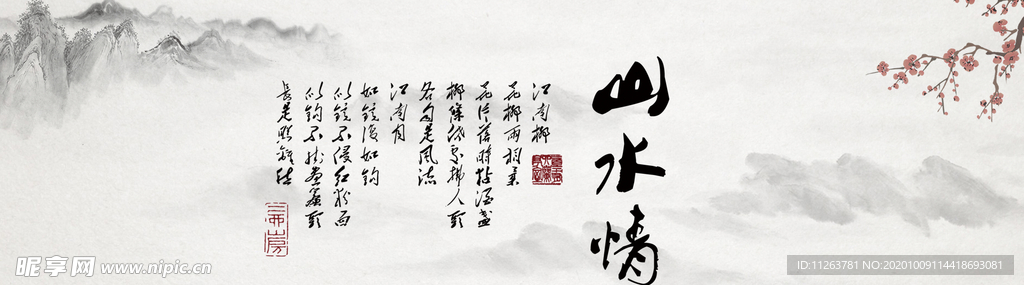 山水情
江南柳
花柳两相柔
花片落时黏酒盏
柳条低处拂人头
各自是风流
江南月
如镜复如钩
似镜不侵红粉面
似钩不挂画帘头
长是照离愁
昵享网 www.nipic.cn
ID:11263781 NO:20201009114418693081